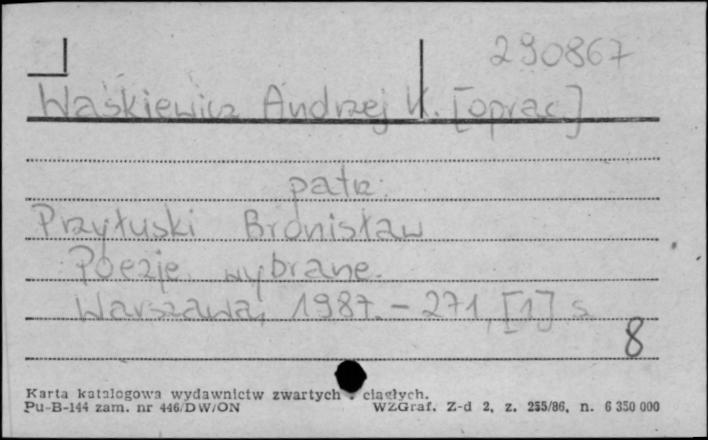 290867
Waśkiewicz Andrzej K. [oprac]
patrz:
Przyłuski Bronisław
Poezje wybrane.
Warszawa, 1987. – 271, [1] s
8
Karta katalogowa wydawnictw zwartych i ciągłych.
Pu-B-144 zam. nr 446/DW/ON WZGraf. Z-d 2, z. 255/86, n. 6 350 000